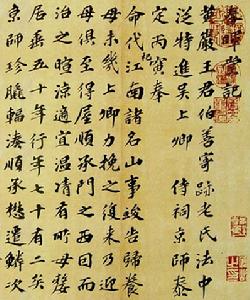 暉堂記
黃巖王君伯善寄跡老氏法中
從特進吳上卿 侍祠京師泰
定丙寅奉
命代江南諸名山事竣告歸養
母未幾上卿力挽之復來乃迎
母俱至得屋順承門之西因而
治之涼適宜清有母嫠
居垂五十年行年七十有二矣
京師珍膬輻湊順承懋遷鱗次